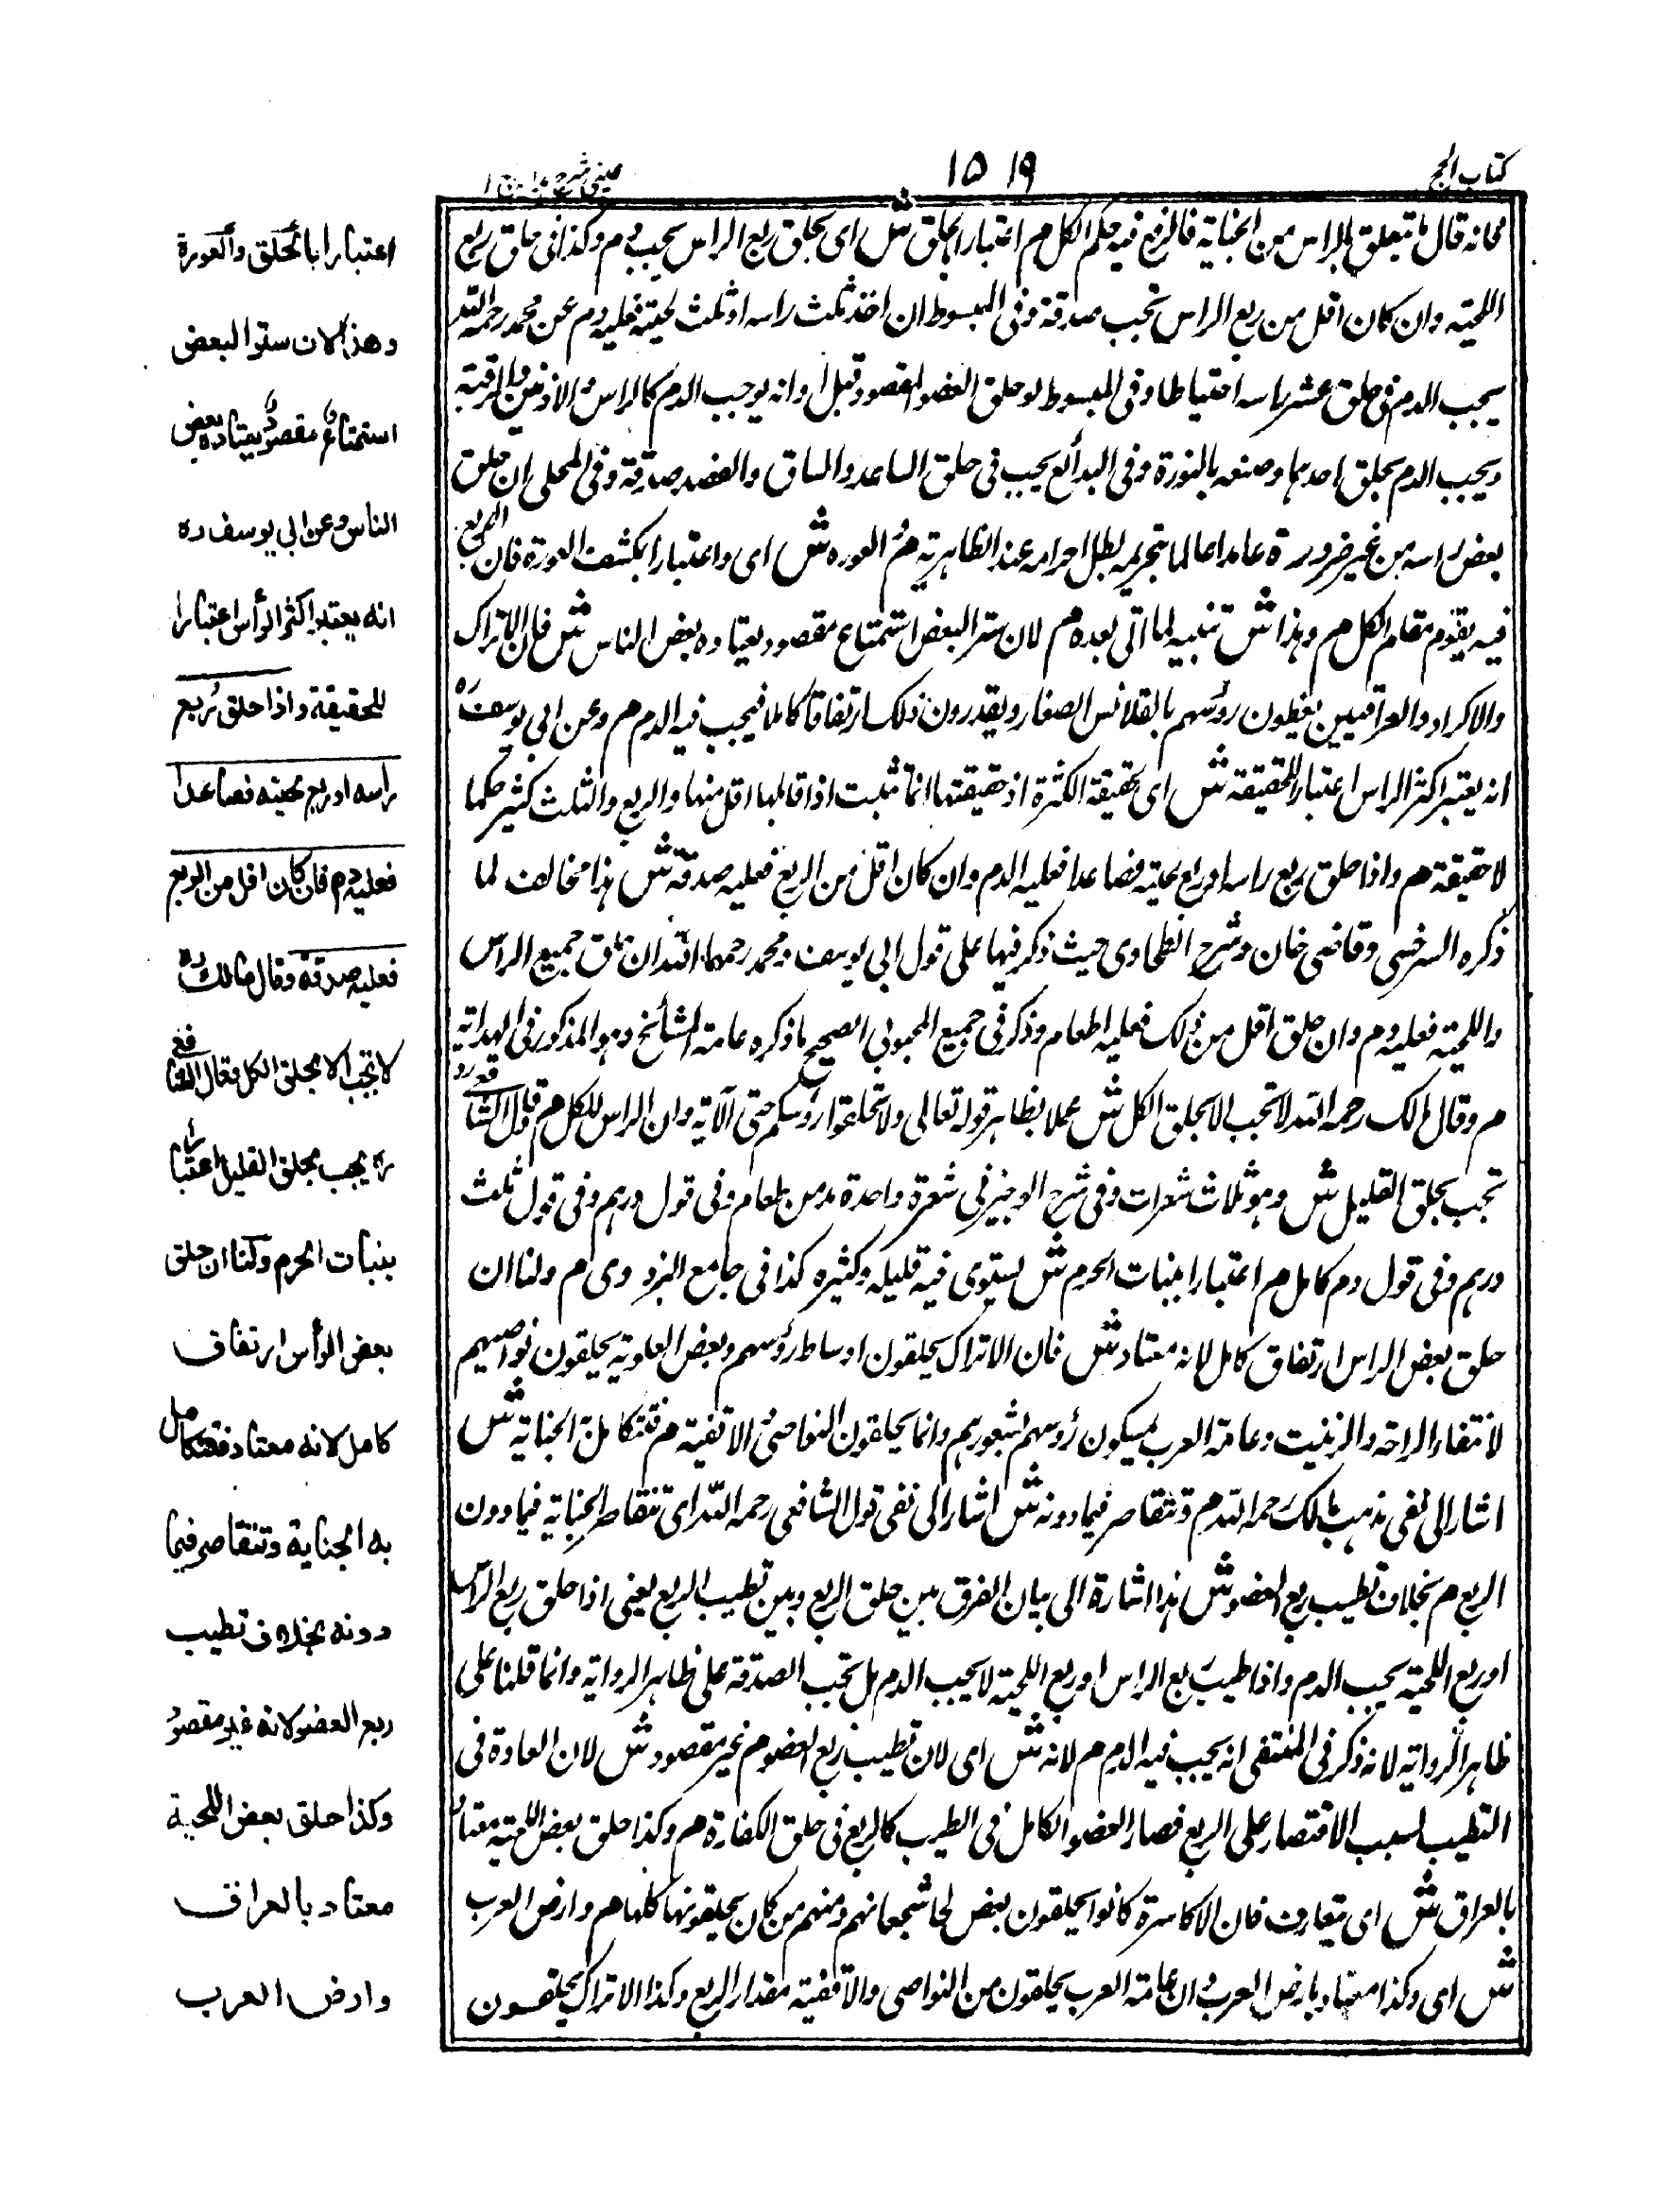 كتاب الحج
١٥١٩
عيني شرح هداية ج ١
كانه قال ما يتعلق بالراس من الجناية فالربع فيه حكم الكل م اعتبارا بالحلق ش اى بحلق ربع الراس يجب دم م وكذا فى حلق ربع
اللحية وان كان اقل من ربع الراس تجب صدقة وفى المبسوط ان اخذ ثلث راسه او ثلث لحيته فعليه دم عن محمد رحمه الله
يجب الدم فى حلق عشر راسه احتياطا وفى المبسوط لو حلق العضو المقصود قبل اوانه يوجب الدم كالراس الاذنين والرقبة
ويجب الدم بحلق احدهما وصنعه بالنورة وفى البدائع يجب فى حلق الساعد والساق والعضد صدقة وفى المحلى ان حلق
بعض راسه من غير ضرورة عامدا عالما بتحريمه بطل احرامه عند الظاهرية م العوره ش اى واعتبارا بكشف العورة فان الربع
فيه يقوم مقام الكل م وهذا ش تنبيه لما اتى بعده م لان ستر البعض استمتاع مقصود يعتاده بعض الناس ش فان الاتراك
والاكراد والعراقيين يغطون رؤسهم بالقلانس الصغار ويقدرون ذلك ارتفاقا كاملا فيجب فيه الدم م وعن ابى يوسف ره
انه يعتبر اكثر الراس اعتبارا للحقيقة ش اى حقيقة الكثرة اذ حقيقتها انما تثبت اذا قابلها اقل منها والربع والثلث كثير حكما
لا حقيقة م واذا حلق ربع راسه او ربع لحيته فصاعدا فعليه الدم وان كان اقل من الربع فعليه صدقة ش هذا مخالف لما
ذكره السرخسى وقاضى خان وشرح الطحاوى حيث ذكر فيها على قول ابى يوسف ومحمد رحمهما الله ان حلق جميع الراس
واللحية فعليه دم وان حلق اقل من ذلك فعليه اطعام وذكر فى جميع المحبوبى الصحيح ما ذكره عامة المشائخ وهو المذكور فى الهداية
م وقال مالك رحمه الله لا تجب الا بحلق الكل ش عملا بظاهر قوله تعالى ولا تحلقوا رؤسكم حتى الآية وان الراس للكل م وقال الشافعى ره
تجب بحلق القليل ش وهو ثلاث شعرات وفى شرح الوجيز فى شعرة واحدة مد من طعام وفى قول درهم وفى قول ثلث
درهم وفى قول دم كامل م اعتبارا بنبات الحرم ش يستوى فيه قليله وكثيره كذا فى جامع البزدوى م ولنا ان
حلق بعض الراس ارتفاق كامل لانه معتاد ش فان الاتراك يحلقون اوساط رؤسهم وبعض العلوية يحلقون نواصيهم
لابتغاء الراحة والزينة وعامة العرب يمسكون رؤسهم شعورهم وانما يحلقون النواصى الاقفية م فتتكامل الجناية ش
اشار الى نفى مذهب مالك رحمه الله م وتتقاصر فيما دونه ش اشار الى نفى قول الشافعى رحمه الله اى تتقاصر الجناية فيما دون
الربع م بخلاف تطييب ربع العضو ش هذا اشارة الى بيان الفرق بين حلق الربع وبين تطييب الربع يعنى اذا حلق ربع الراس
او ربع اللحية يجب الدم واذا طيب ربع الراس او ربع اللحية لا يجب الدم بل تجب الصدقة على ظاهر الرواية وانما قلنا على
ظاهر الرواية لانه ذكر فى المنتقى انه يجب فيه الدم م لانه ش اى لان تطييب ربع العضو م غير مقصود ش لان العادة فى
التطييب ليست الاقتصار على الربع فصار العضو الكامل فى الطيب كالربع فى حلق الكفارة م وكذا حلق بعض اللحية معتاد
بالعراق ش اى متعارف فان الاكاسرة كانوا يحلقون بعض لحا شجعانهم ومنهم من كان يحلقونها كلها م وارض العرب
ش اى وكذا معتاد بارض العرب ان عامة العرب يحلقون من النواصى والاقفية مقدار الربع وكذا الاتراك يحلقون
اعتبارا بالحلق والعورة
وهذا لان ستر البعض
استمتاع مقصود يعتاده بعض
الناس وعن ابي يوسف ره
انه يعتبر اكثر الرأس اعتبارا
للحقيقة واذا حلق ربع
راسه او ربع لحيته فصاعدا
فعليه دم فان كان اقل من الربع
فعليه صدقة وقال مالك ره
لا تجب الا بحلق الكل وقال الشافعي
ره يجب بحلق القليل اعتبارا
بنبات الحرم ولنا ان حلق
بعض الرأس ارتفاق
كامل لانه معتاد فتتكامل
به الجناية وتتقاصر فيما
دونه بخلاف تطييب
ربع العضو لانه غير مقصود
وكذا حلق بعض اللحية
معتاد بالعراق
وارض العرب